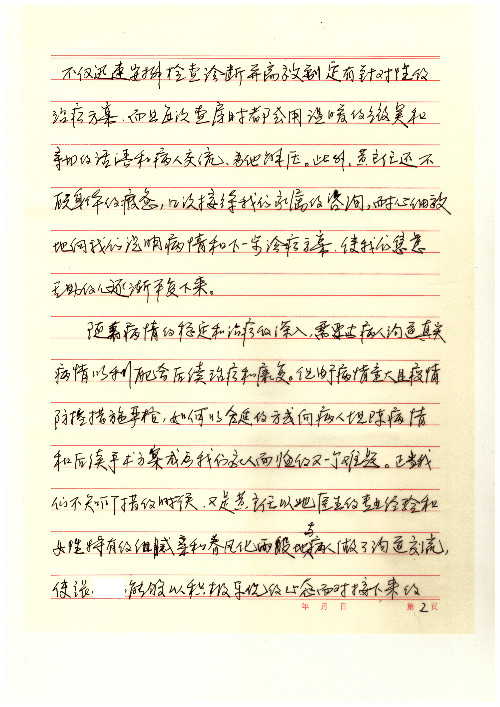 不仅迅速安排检查诊断并高效制定有针对性的
治疗方案,而且每次查房时都会用温暖的微笑和
亲切的话语和病人交流、为他解压。此外,黄主任还不
顾身体的疲惫,口次接待我们家属的咨询,耐心细致
地向我们说明病情和下一步治疗方案,使我们焦虑
无助的心逐渐平复下来。
随着病情的稳定和治疗的深入,需要让病人沟通真实
病情以利配合后续治疗和康复。但由于病情重大且疫情
防控措施严格,如何以合适的方式向病人坦陈病情
和后续手术方案成为我们家人面临的又一个难题。正当我
们不知所措的时候,又是黄主任以她丰富的专业经验和
女性特有的细腻亲和春风化雨般地与病人做了沟通交流,
使张 能够以积极乐观的心态面对接下来的
年 月 日 第 2 页